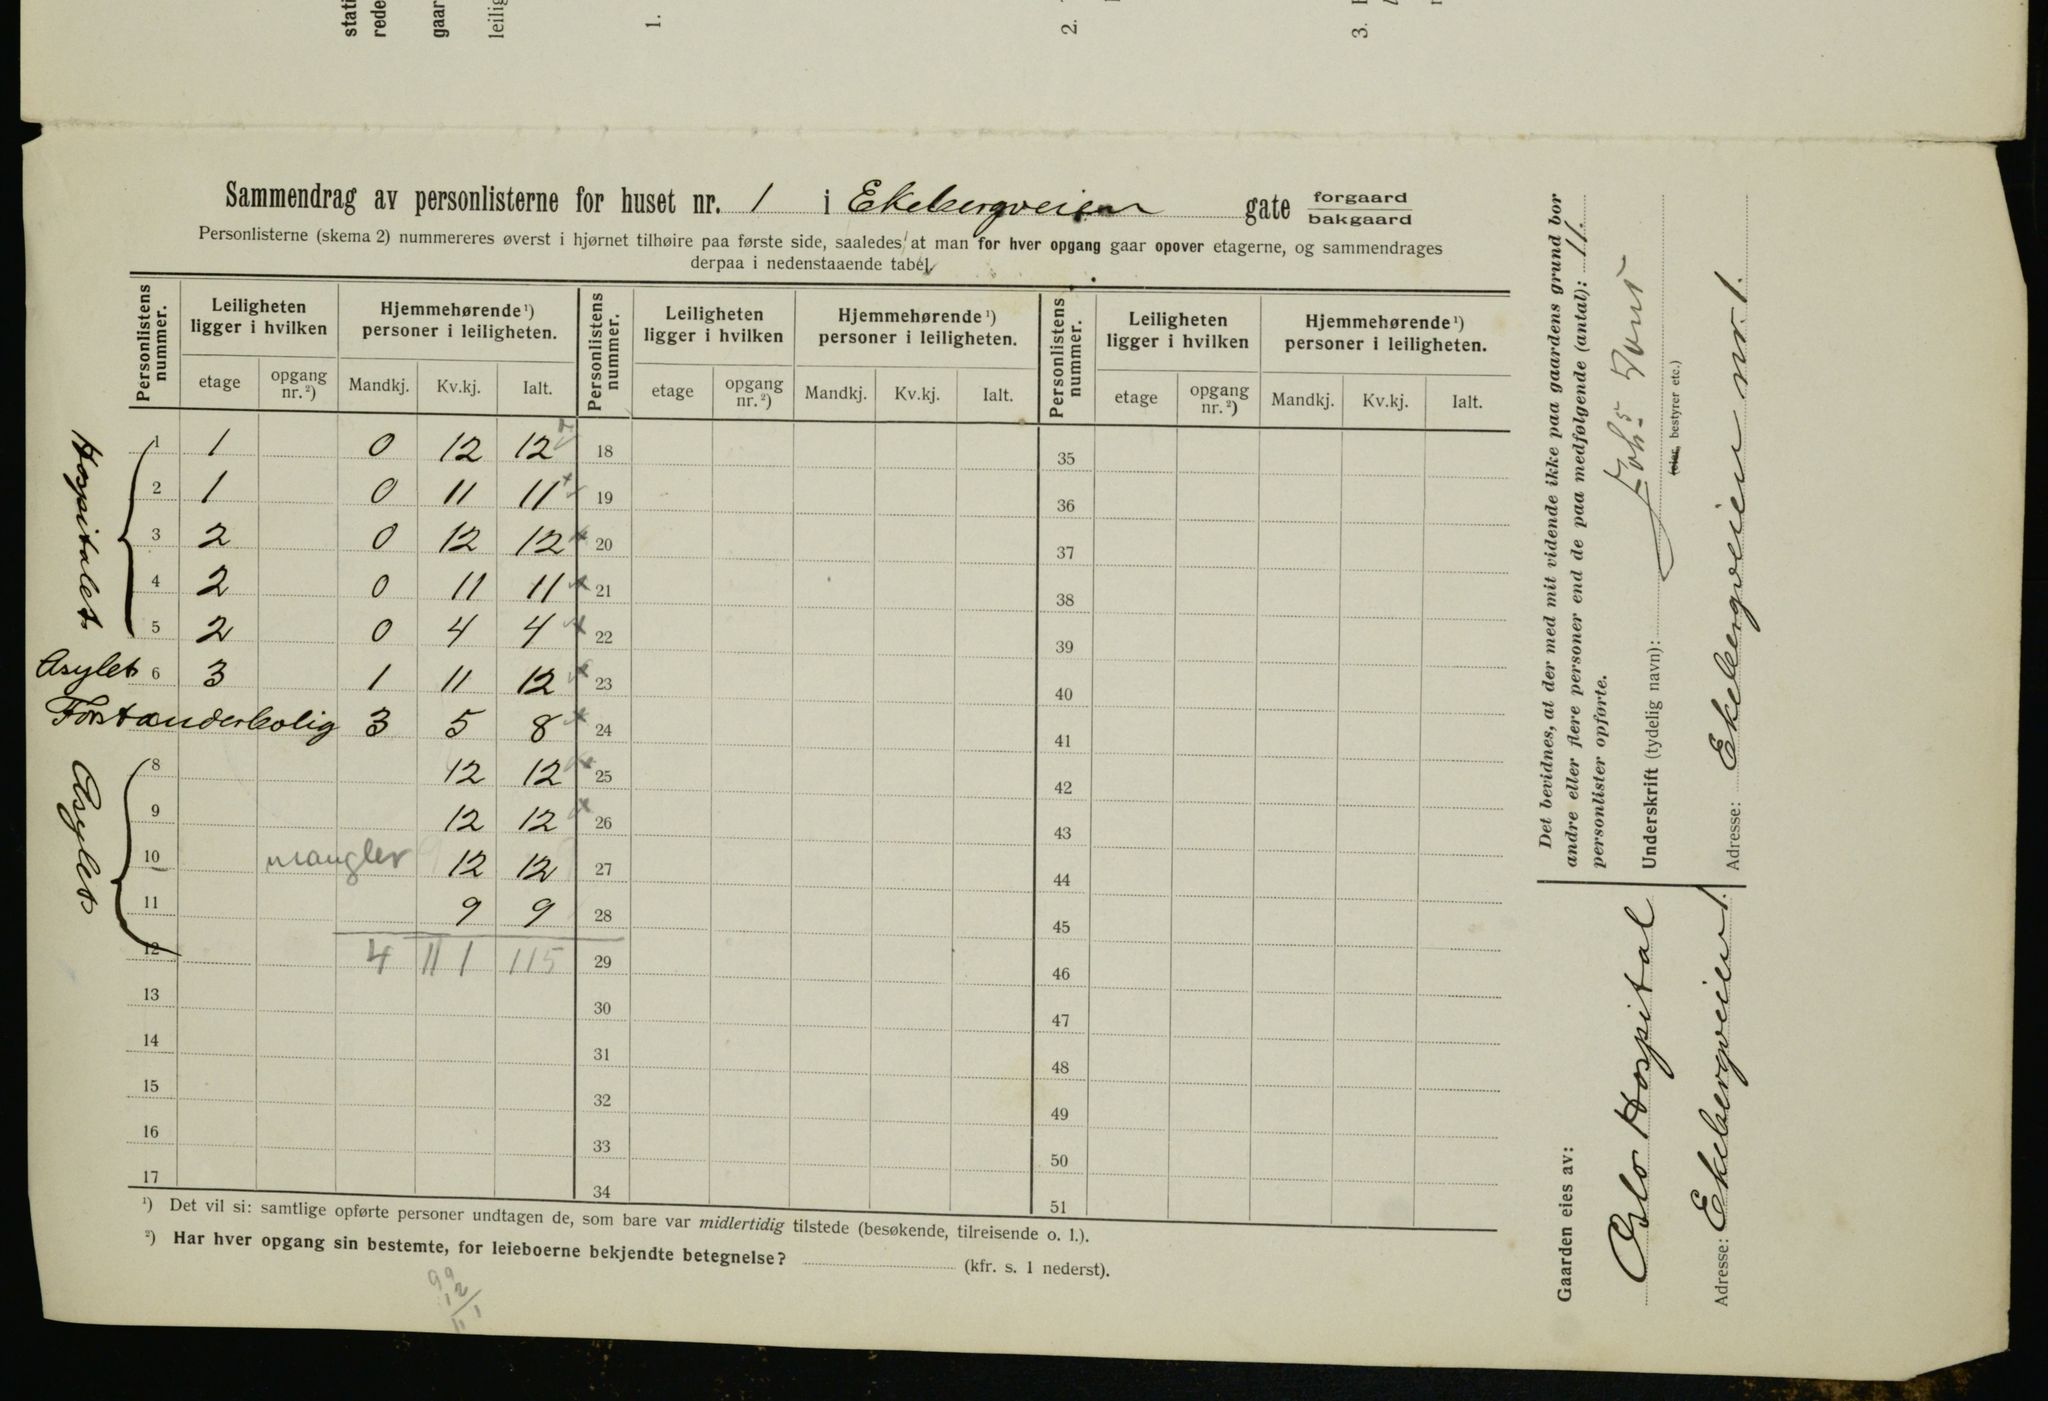 stati
rede
gaar
leilig
1.
2.
3.
Sammendrag av personlisterne for huset nr. 1 i Ekebergveien gate forgaard
bakgaard
Personlisterne (skema 2) nummereres øverst i hjørnet tilhøire paa første side, saaledes at man for hver opgang gaar opover etagerne, og sammendrages
derpaa i nedenstaaende tabel.
Personlistens nummer. Leiligheten ligger i hvilken Hjemmehørende ¹) personer i leiligheten. Personlistens nummer. Leiligheten ligger i hvilken Hjemmehørende ¹) personer i leiligheten. Personlistens nummer. Leiligheten ligger i hvilken Hjemmehørende ¹) personer i leiligheten.
etage opgang nr. ²) Mandkj. Kv.kj. Ialt. etage opgang nr. ²) Mandkj. Kv.kj. Ialt. etage opgang nr. ²) Mandkj. Kv.kj. Ialt.
Hospitalet
1 1 0 12 12 18 35
2 1 0 11 11 19 36
3 2 0 12 12 20 37
4 2 0 11 11 21 38
5 2 0 4 4 22 39
Asylet 6 3 1 11 12 23 40
Forstanderbolig 3 5 8 24 41
Asylet
8 12 12 25 42
9 12 12 26 43
10 mangler 12 12 27 44
11 9 9 28 45
12 4 111 115 29 46
13 30 47
14 31 48
15 32 49
16 33 50
17 34 51
¹) Det vil si: samtlige opførte personer undtagen de, som bare var midlertidig tilstede (besøkende, tilreisende o. l.).
²) Har hver opgang sin bestemte, for leieboerne bekjendte betegnelse? (kfr. s. 1 nederst).
99
12
111
Det bevidnes, at der med mit vidende ikke paa gaardens grund bor
andre eller flere personer end de paa medfølgende (antal): 11.
personlister opførte.
Underskrift (tydelig navn): Johs
(eier, bestyrer etc.)
Adresse: Ekebergveien nr. 1.
Gaarden eies av:
Oslo Hospital
Adresse: Ekebergveien 1.